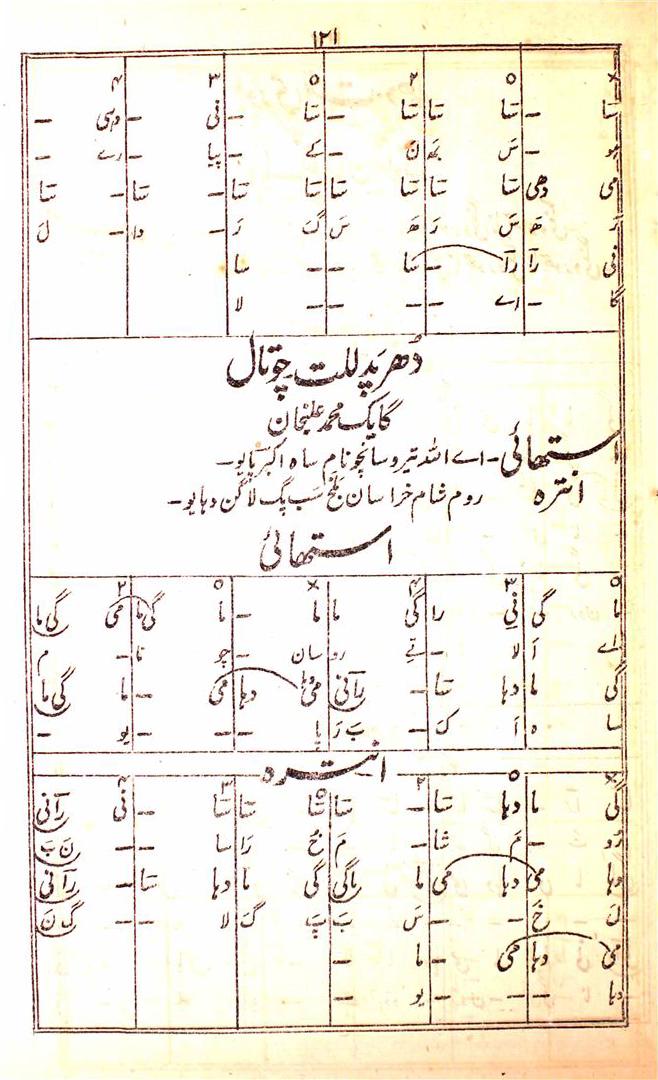 ۱۲۱
× ۰ ۲ ۰ ۳ ۴
سَا - سَا سَا سَا - سَا - نی - دہی -
یو - سَ بھَ نَ - کے - پیا - رے -
می دھی سَا سَا سَا سَا سَا سَا - سَا - سَا
رَ ھَ سَ رَ ھَ سَ گ رَ - دا - لَ
نی رآ رآ - سَا - - سا
گا - اے - - - - لا
دُھرپد للت چوتال
گایک محمد علیخان
استھائی - اے اللہ تیرو سانچو نام ساہ اکبر پایو -
انترہ روم شام خراسان بلخ سَب پگ لاگن دہایو -
استھائی
۰ ۳ ۴ × ۰ ۲
ما گی نِی را گی ما ما - ما گی ما می گی ما
اے اَ لا - تے رو سان - چو نا - م
گی ما دہا سَا - رآنی می دہا دہا می - ما گی ما
سا ہ اَ ک - بَ رَ پا - - - یو -
انترہ
× ۰ ۲ ۰ ۳ ۴
گی ما دہا سَا - سَا سَا سَا سَا - نی رآنی
رُو - مَ شا - مَ خُ رَا سا - - نَ بَ
دہا می دہا می ما ماگی گی ما دہا سَا - رآنی
لَ خَ - - سَ بَ پَ گَ لا - - گَ نَ
می دہا می - ما -
دہا - - - یو -